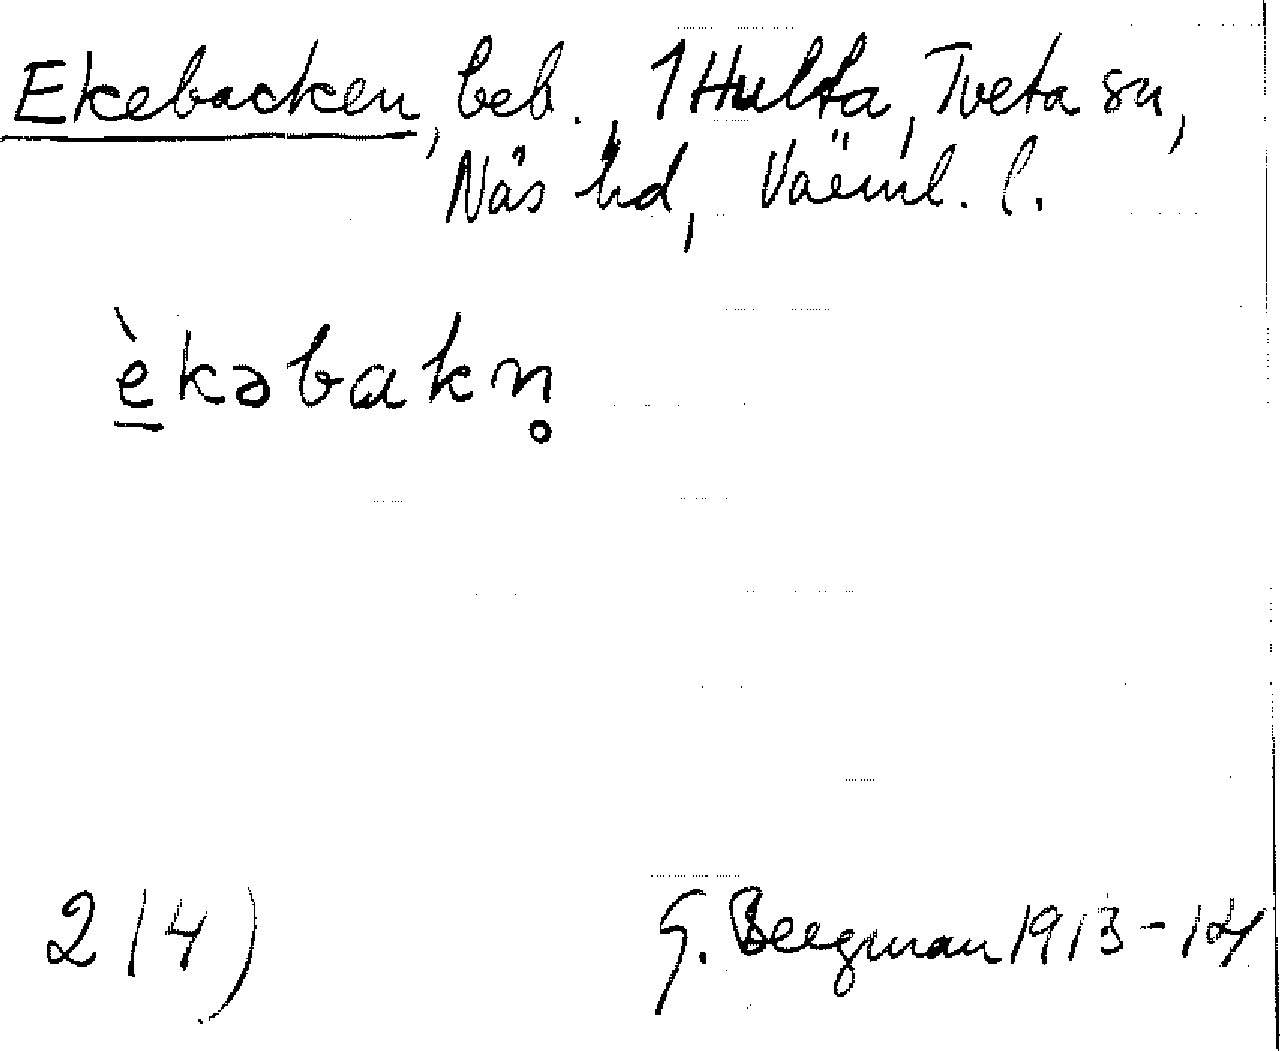 Ekebacken, beb., 1 Hulta, Tveta sn,
Näs hd, Värml. l.
èkəbakn̥
2 (4)
G. Bergman 1913-14